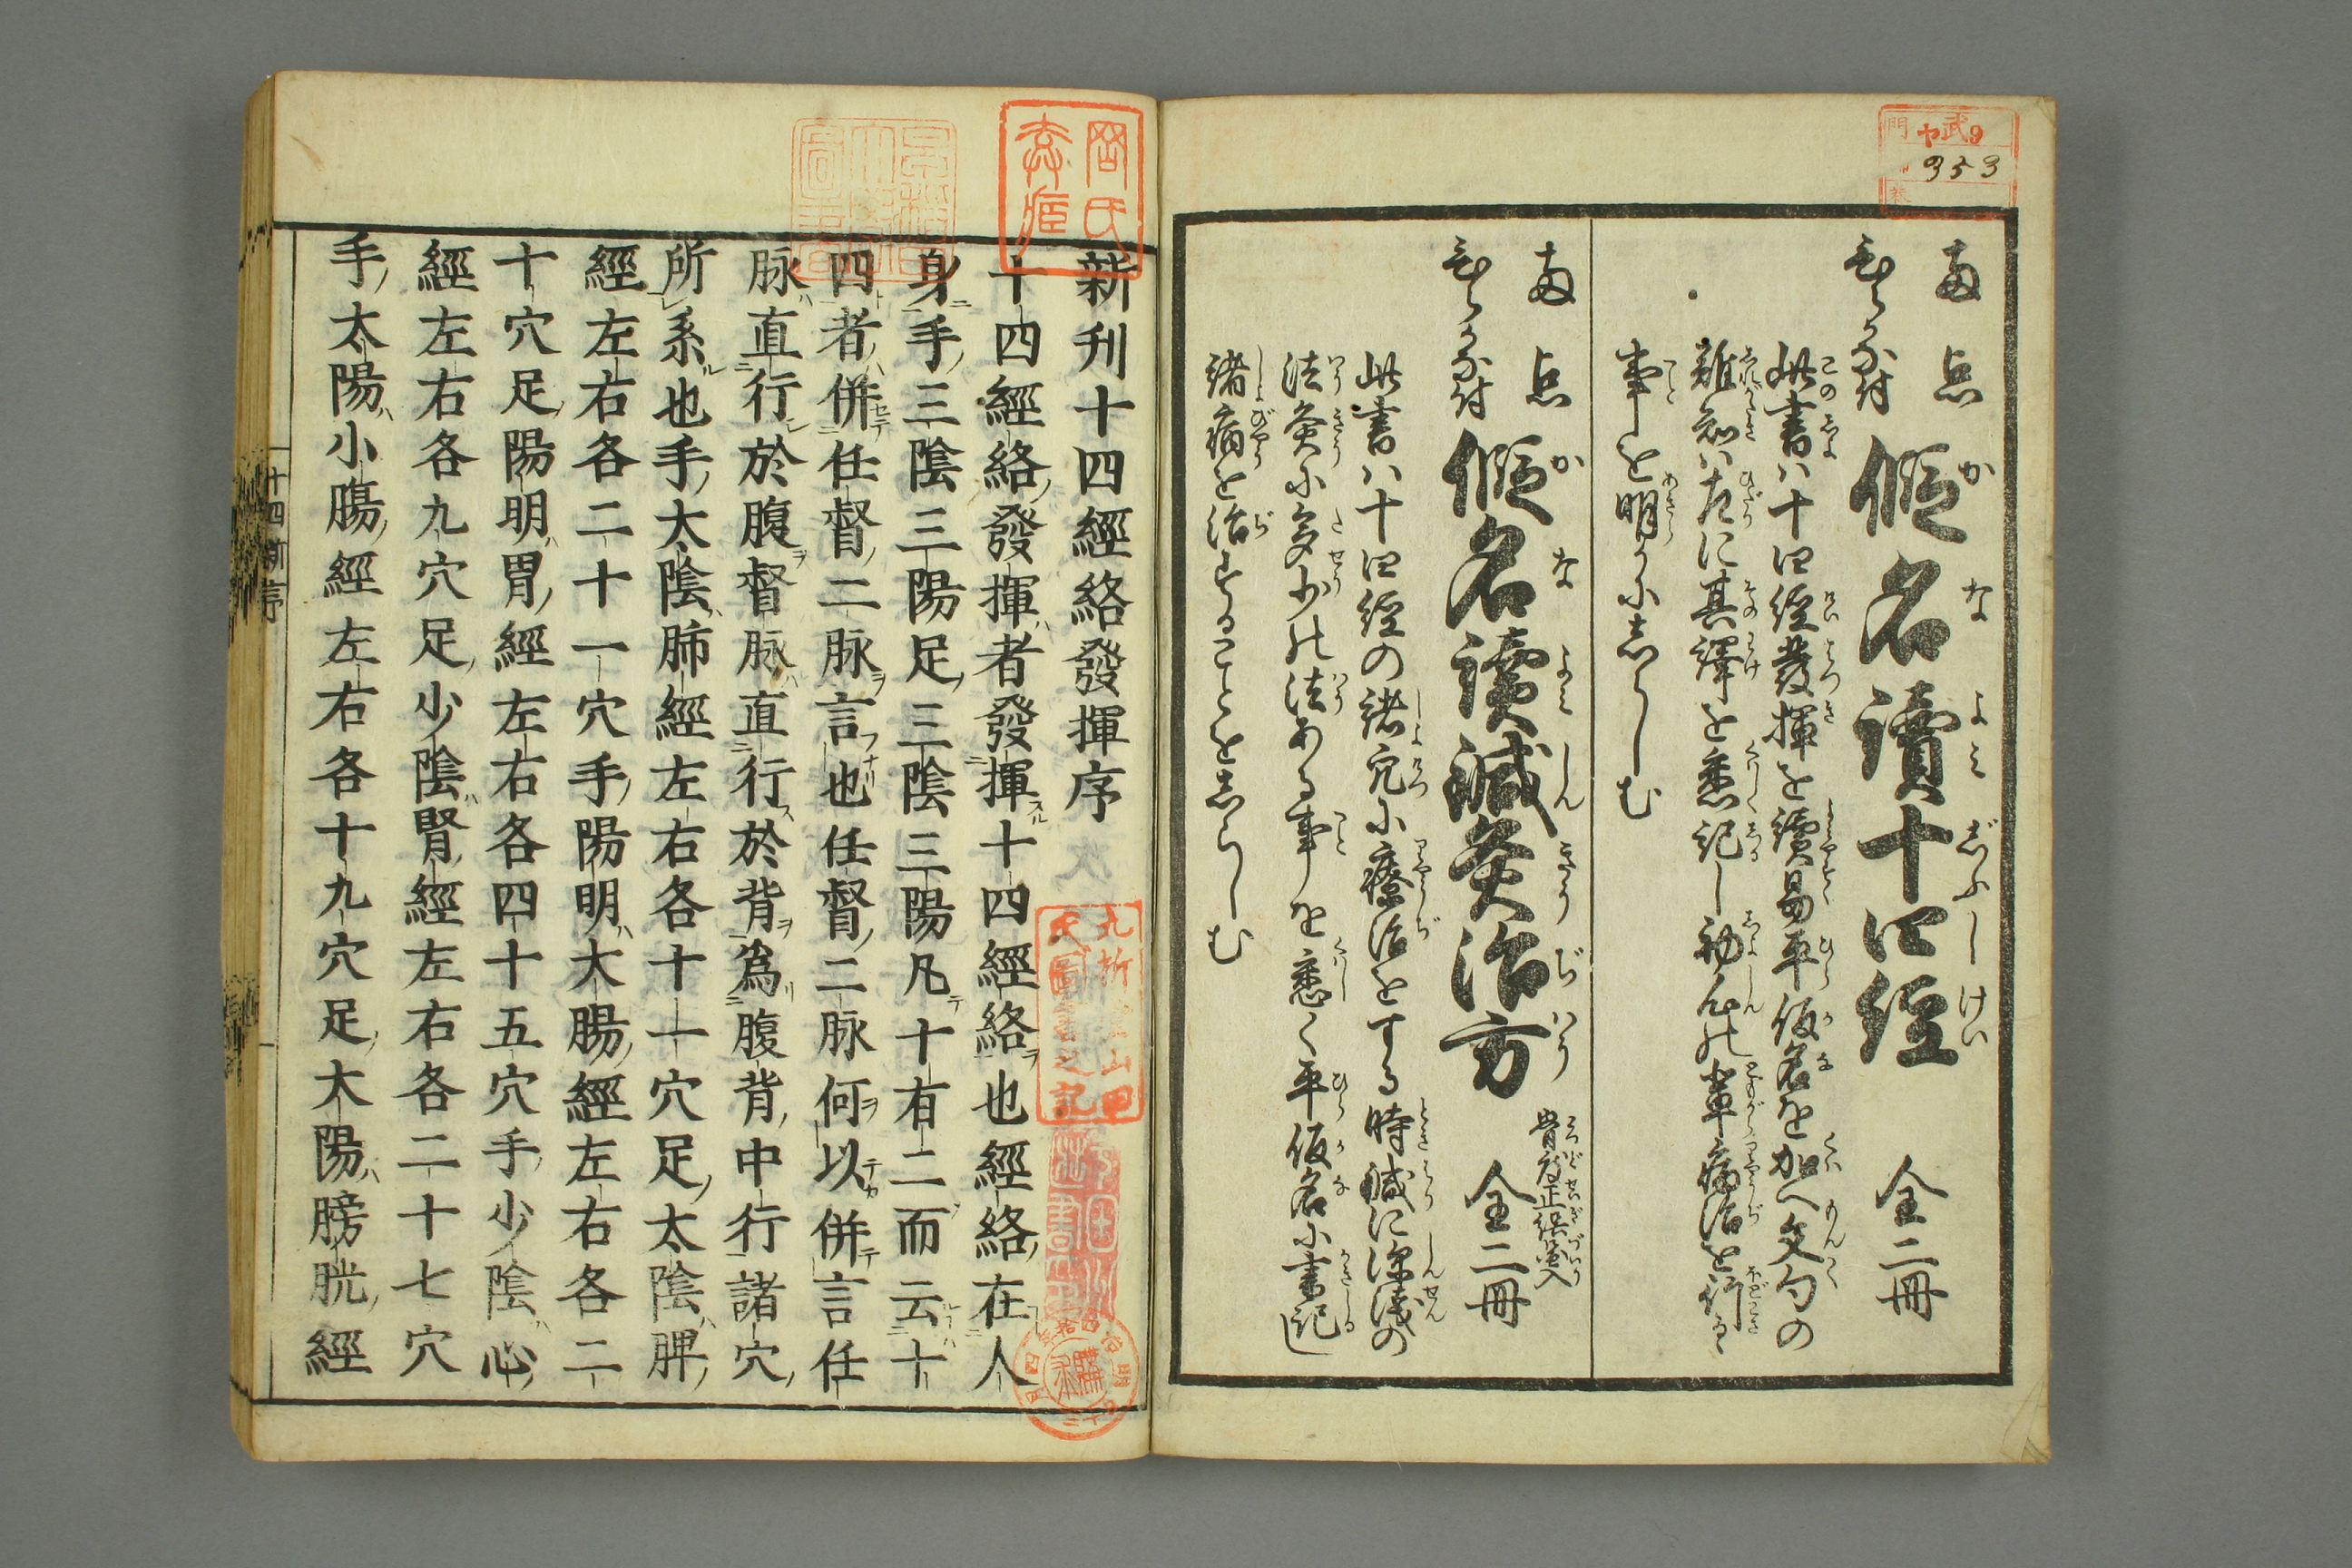 両点
ひらかな付
假名讀十四経 全二冊
此書ハ十四経發揮を讀易平仮名を加へ文句の
難知ハ左に其譯を悉記し初心の輩病治を行
事を明らかに志らしむ
両点
ひらかな付
假名讀鍼灸治方 全二冊
骨度正誤圖入
此書ハ十四経の諸穴に療治をする時鍼に深浅の
法灸に多少の法ある事を悉く平仮名に書記し
諸病を治することを志らしむ
新刊十四經絡發揮序
十四經絡發揮者發揮十四經絡也經絡在人
身手三陰三陽足三陰三陽凡十有二而云十
四者併任督二脉言也任督二脉何以併言任
脉直行於腹督脉直行於背爲腹背中行諸穴
所系也手太陰肺經左右各十一穴足太陰脾
經左右各二十一穴手陽明大腸經左右各二
十穴足陽明胃經左右各四十五穴手少陰心
經左右各九穴足少陰腎經左右各二十七穴
手太陽小膓經左右各十九穴足太陽膀胱經
十四新序
353